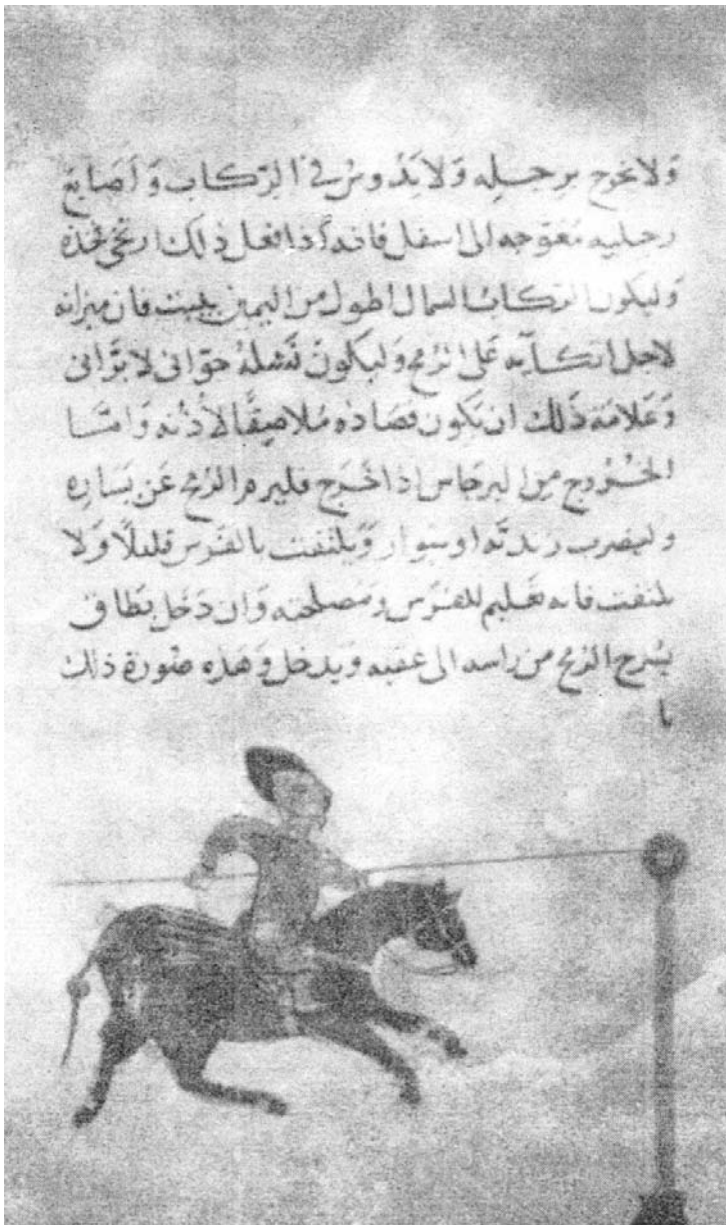 وَلَا يخرج برجله وَلَا يَدُوس في الرّكاب وَأصَابع
رجليه مُعَوّجه الى اسفل فانه اذا فعل ذلك ارتخى فخذه
وَليكون الركابُ الشمال اطول من اليمين بيسير فان ميزانه
لاجل اتكآيه عَلى الرمح وَليكون نَشله جوّانى لا برّانى
وَعَلامَة ذلك ان يكون مُلاصِقًا لأذنه وَامّا
الخُرُوج مِن البرجاس اذا خَرج فليرم الرمح عَن يسَاره
وليضرب او وَيلتفت بالفَرس قليلًا وَلا
يلتفت فانه تعَليم للفَرس ومَصلحته وَان دَخَل بطَاق
يسرح الرمح من راسه الى عقبه وَيدخل وَهَذه صُورة ذلك